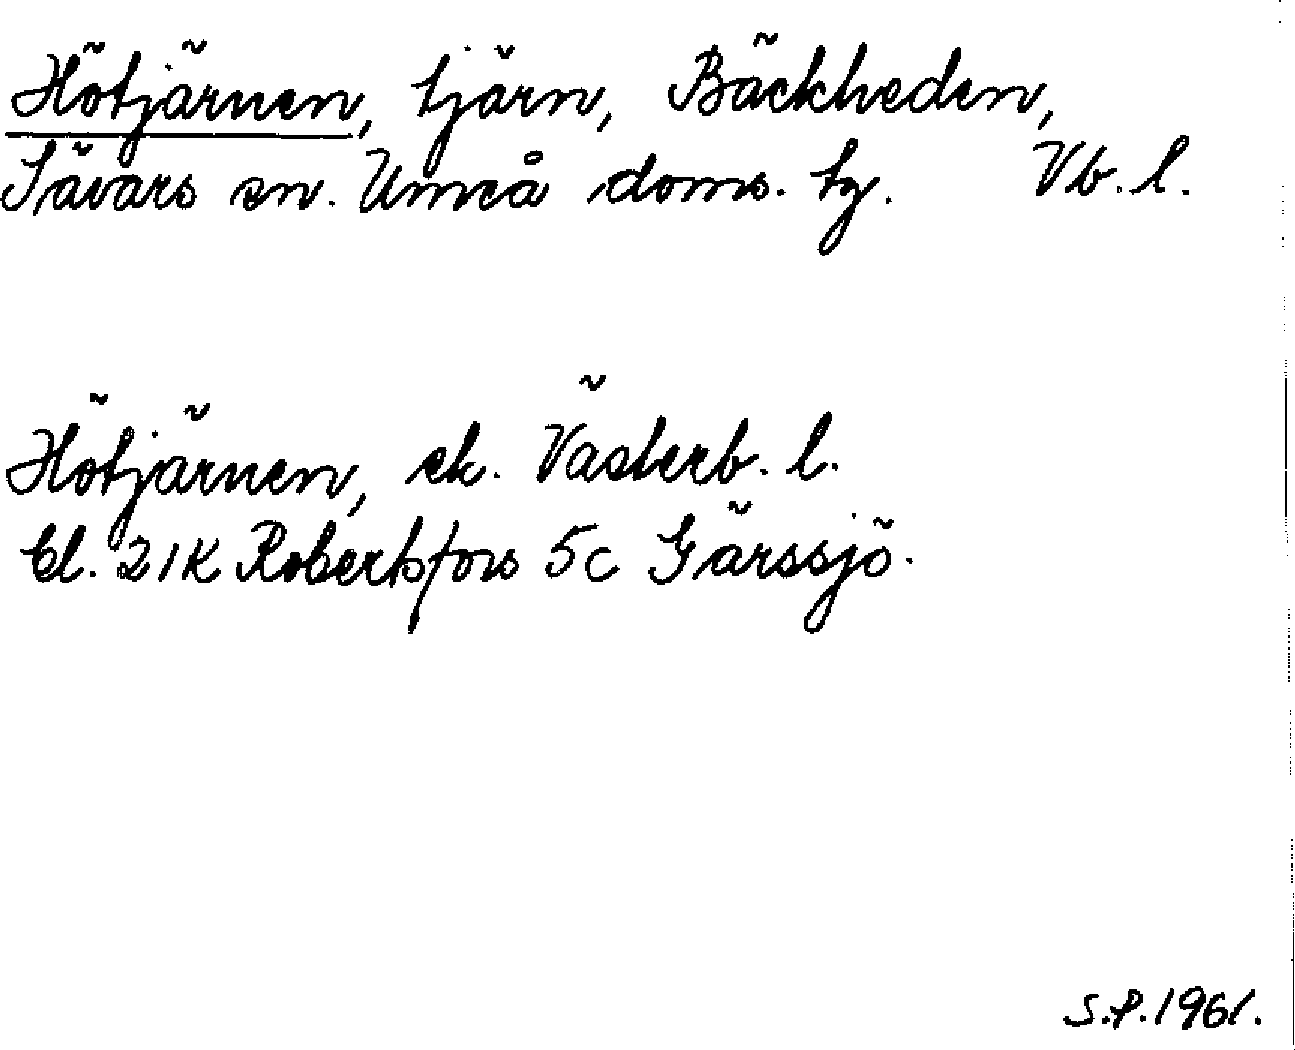 Hötjärnen, tjärn, Bäckheden,
Sävars sn. Umeå doms. tg. Vb. l.
Hötjärnen, ek. Västerb. l.
bl. 21K Robertsfors 5c Gärssjö.
S.P. 1961.